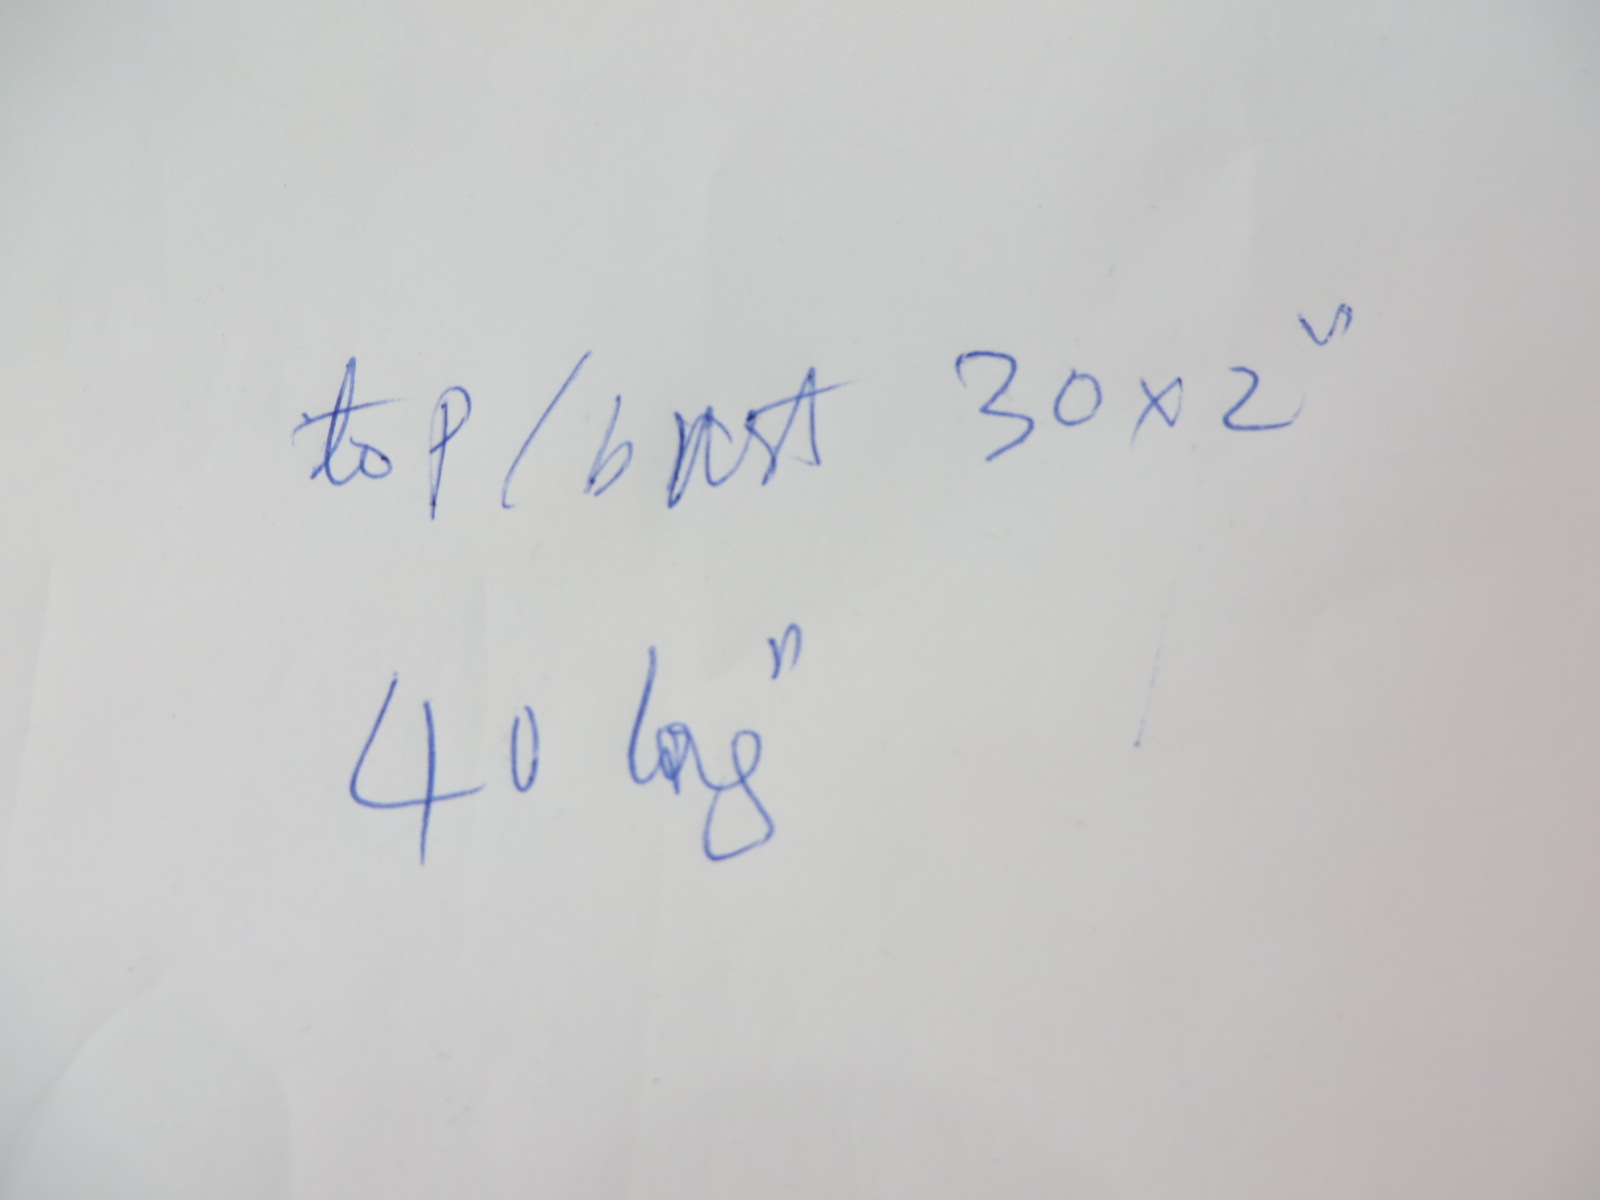 top/brest 30x2"
40 long"